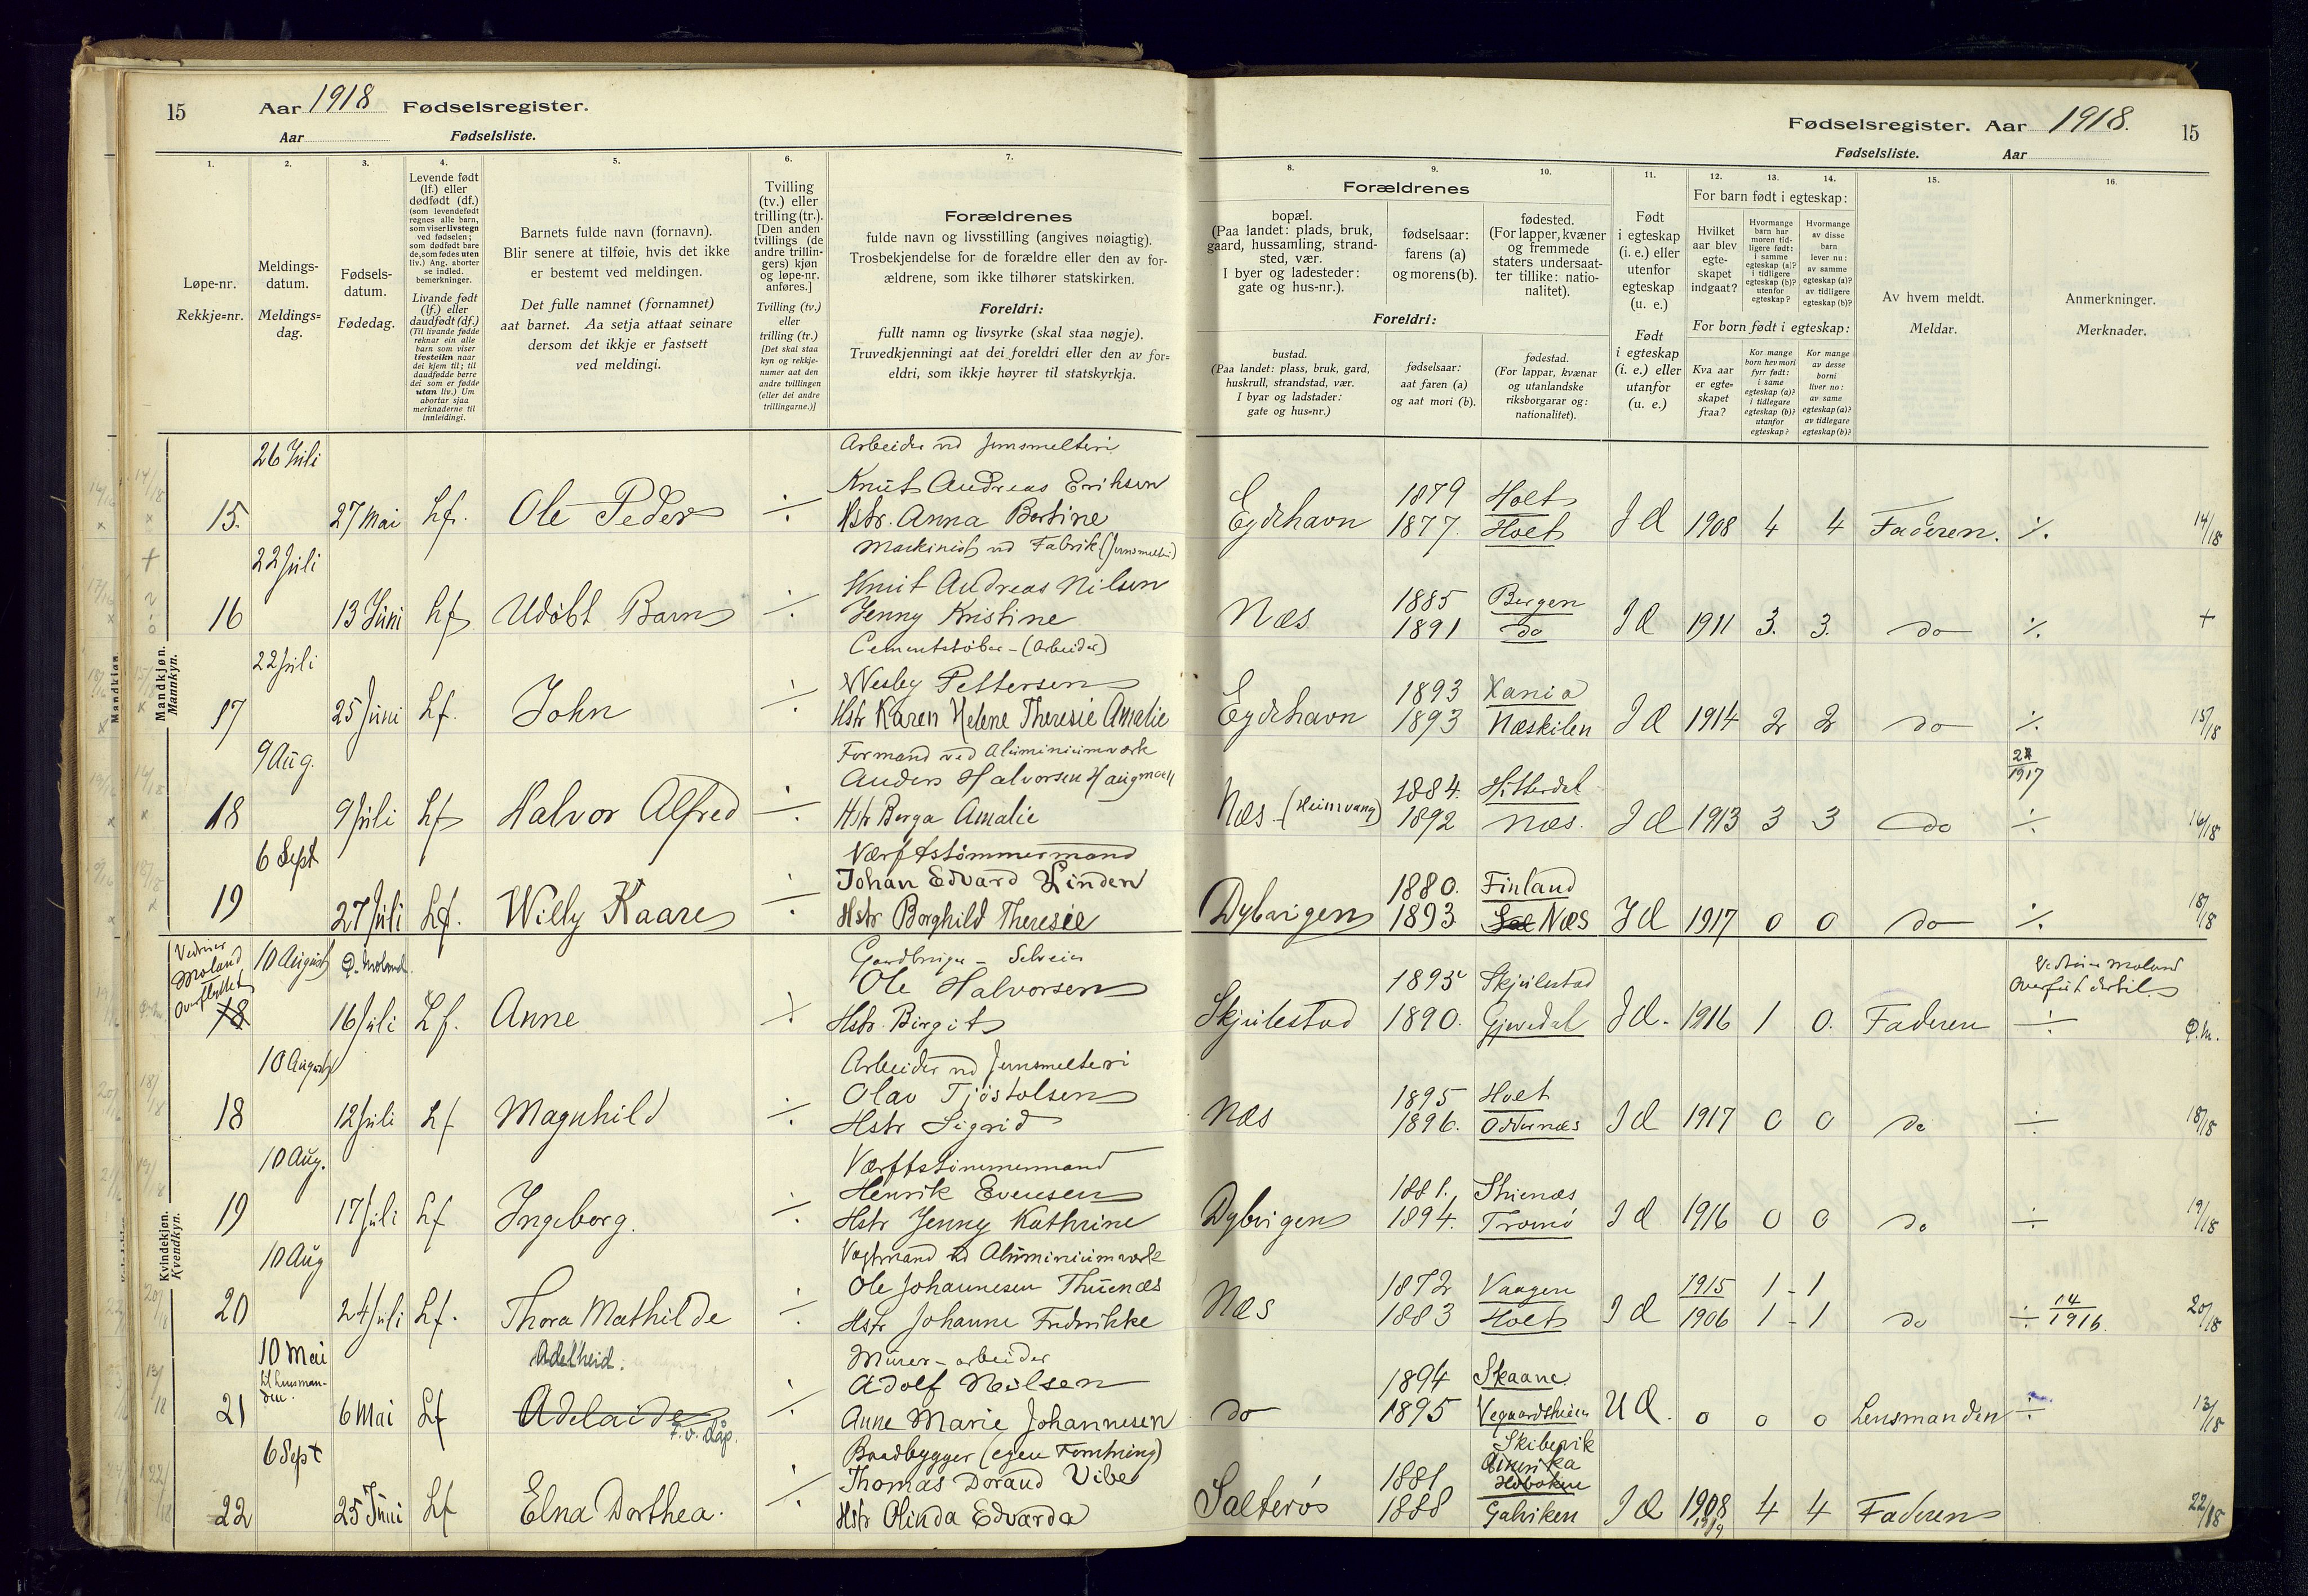 15
Aar 1918 Fødselsregister.
Aar Fødselsliste.
1.
Løpe-nr.
Rekkje=nr.
2.
Meldings-
datum.
Meldings=
dag.
3.
Fødsels-
datum.
Fødedag.
4.
Levende født
(lf.) eller
dødfødt (df.)
(som levendefødt
regnes alle barn,
som viser livstegn
ved fødselen;
som dødfødt bare
de, som fødes uten
liv.) Ang. aborter
se indled.
bemerkninger.
Livande født
(lf.) eller
daudfødt (df.)
(Til livande fødde
reknar ein alle
barn som viser
livsteikn naar
dei kjem til; til
daudfødde berre
dei som er fødde
utan liv.) Um
abortar sjaa
merknaderne til
innleidingi.
5.
Barnets fulde navn (fornavn).
Blir senere at tilføie, hvis det ikke
er bestemt ved meldingen.
Det fulle namnet (fornamnet)
aat barnet. Aa setja attaat seinare
dersom det ikkje er fastsett
ved meldingi.
6.
Tvilling
(tv.) eller
trilling (tr.).
[Den anden
tvillings (de
andre trillin-
gers) kjøn
og løpe-nr.
anføres.]
Tvilling (tv.)
eller
trilling (tr.)
[Det skal staa
kyn og rekkje-
numer aat den
andre tvillingen
(eller dei andre
trillingarne.)]
7.
Forældrenes
fulde navn og livsstilling (angives nøiagtig).
Trosbekjendelse for de forældre eller den av for-
ældrene, som ikke tilhører statskirken.
Foreldri:
fullt namn og livsyrke (skal staa nøgje).
Truvedkjenningi aat dei foreldri eller den av for=
eldri, som ikkje høyrer til statskyrkja.
Fødselsregister. Aar 1918. 15
Fødselsliste. Aar
Forældrenes
8.
bopæl.
(Paa landet: plads, bruk,
gaard, hussamling, strand-
sted, vær.
I byer og ladesteder:
gate og hus-nr.).
9.
fødselsaar:
farens (a)
og morens (b).
10.
fødested.
(For lapper, kvæner
og fremmede
staters undersaat-
ter tillike: natio-
nalitet).
Foreldri:
bustad.
(Paa landet: plass, bruk, gard,
huskrull, strandstad, vær.
I byar og ladstader:
gate og hus=nr.)
fødselsaar:
aat faren (a)
og aat mori (b).
fødestad.
(For lappar, kvænar
og utanlandske
riksborgarar og:
nationalitet).
11.
Født
i egteskap
(i. e.) eller
utenfor
egteskap
(u. e.)
Født
i egteskap
(i. e.) eller
utanfor
(u. e.)
12. 13. 14.
For barn født i egteskap:
Hvilket
aar blev
egte-
skapet
indgaat?
Hvormange
barn har
moren tid-
ligere født:
i samme
egteskap (a)?
i tidligere
egteskap (b)?
utenfor
egteskap?
Hvormange
av disse
barn
lever nu:
av samme
egteskap (a)?
av tidligere
egteskap (b)?
For born født i egteskap:
Kva aar
er egte=
skapet
fraa?
Kor mange
born hev mori
fyrr født:
i same
egteskap (a)?
i tidlegare
egteskap (b)?
utanfor
egteskap?
Kor mange
av desse
borni
liver no:
av same
egteskap (a)?
av tidlegare
egteskap (b)?
15.
Av hvem meldt.
Meldar.
16.
Anmerkninger.
Merknader.
Mandkjøn.
Mannkyn.
26 Juli
Arbeider vd Jernsmelteri
Knut Andreas Eriksen 1879 Holt
15. 27 Mai Lf. Ole Peder ÷ Hstr. Anna Bertine Eydehavn 1877. Holt I E 1908 4 4 Faderen. ·/. 14/18
22 Juli
Maskinist vd Fabrik (Jernsmelteri)
Knut Andreas Nilsen 1885 Bergen
16 13 Juni Lf Udöbt Barn ÷ Jenny Kristine Næs 1891 do I E 1911 3. 3. do ·/. +
22 Juli
Cementstöber - (Arbeider)
Wesley Pettersen 1893 Xania
17 25 Juni Lf. John ÷ Hstr Karen Helene Theresie Amalie Eydehavn 1893 Næskilen I E 1914 2 2 do ·/. 15/18
9 Aug.
Formand ved Aluminiumværk
Anders Halvorsen Haugmoen 1884. Hitterdal 1917
18 9 Juli Lf Halvor Alfred ÷ Hstr Berga Amalie Næs - (Heimvang) 1892 Næs. I E 1913 3 3 do ÷ 16/18
6 Sept
Værftstömmermand
Johan Edvard Linden 1880. Finland
19 27 Juli Lf. Willy Kaare ÷ Hstr Borghild Theresie Dybvigen 1893 Næs I E 1917 0 0 do ·/. 18/18
Kvindekjøn.
Kvendkyn.
Moland
overflyttet
10 August Ö. Moland
Gaardbruger - Selveier
Ole Halvorsen 1893 Skjulestad
18 16 Juli Lf. Anne ÷ Hstr. Birgit Skjulestad 1890. Gjevedal I E. 1916 1 0. Faderen ÷ Ö.M.
10 August
Arbeider vd Jernsmelteri
Olav Tjöstolsen 1895 Holt
18 12 Juli Lf Magnhild ÷ Hstr Sigrid Næs 1896. Oddernæs I E 1917 0 0 do ÷ 18/18
10 Aug.
Værftstömmermand
Henrik Evensen 1881. Thuenæs
19 17 Juli Lf Ingeborg. ÷ Hstr Jenny Kathrine Dybvigen 1894. Tromö I E 1916 0 0 do ÷ 19/18
10 Aug
Vagtmand vd Aluminiumværk
Ole Johannesen Thuenæs 1872 Vaagen 1915 1 - 1
20 24 Juli Lf. Thora Mathilde ÷ Hstr Johanne Fredrikke Næs 1883 Holt I E 1906 1 - 1 do ÷ 14/1916. 20/18
10 Mai
til Lensman-
den.
Adelheid.
Murer - arbeider
Adolf Nilsen 1894 Skaane.
21 6 Mai Lf Adelaide F.v. dåp. ÷ Anne Marie Johannesen do 1895 Vegaardsheien U E. 0 0 0 Lensmanden ÷ 13/18
6 Sept
Baadbygger (egen Forretning) Skibevik
Thomas Dorand Vibe 1881 Amerika
Hoboken
22 25 Juni Lf Elna Dorthea. ÷ Hstr Olinda Edvarda Salterös 1888 Galviken I E 1908 4 4 Faderen 22/18
1919